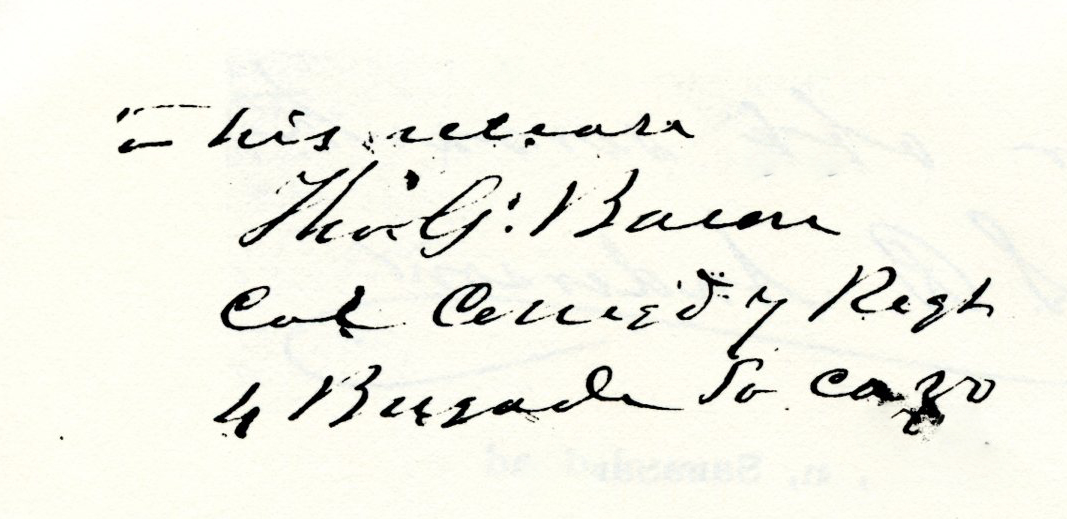 his return
Tho. G. Bacon
Col Com'g'd 7 Regt
4 Brigade So Ca